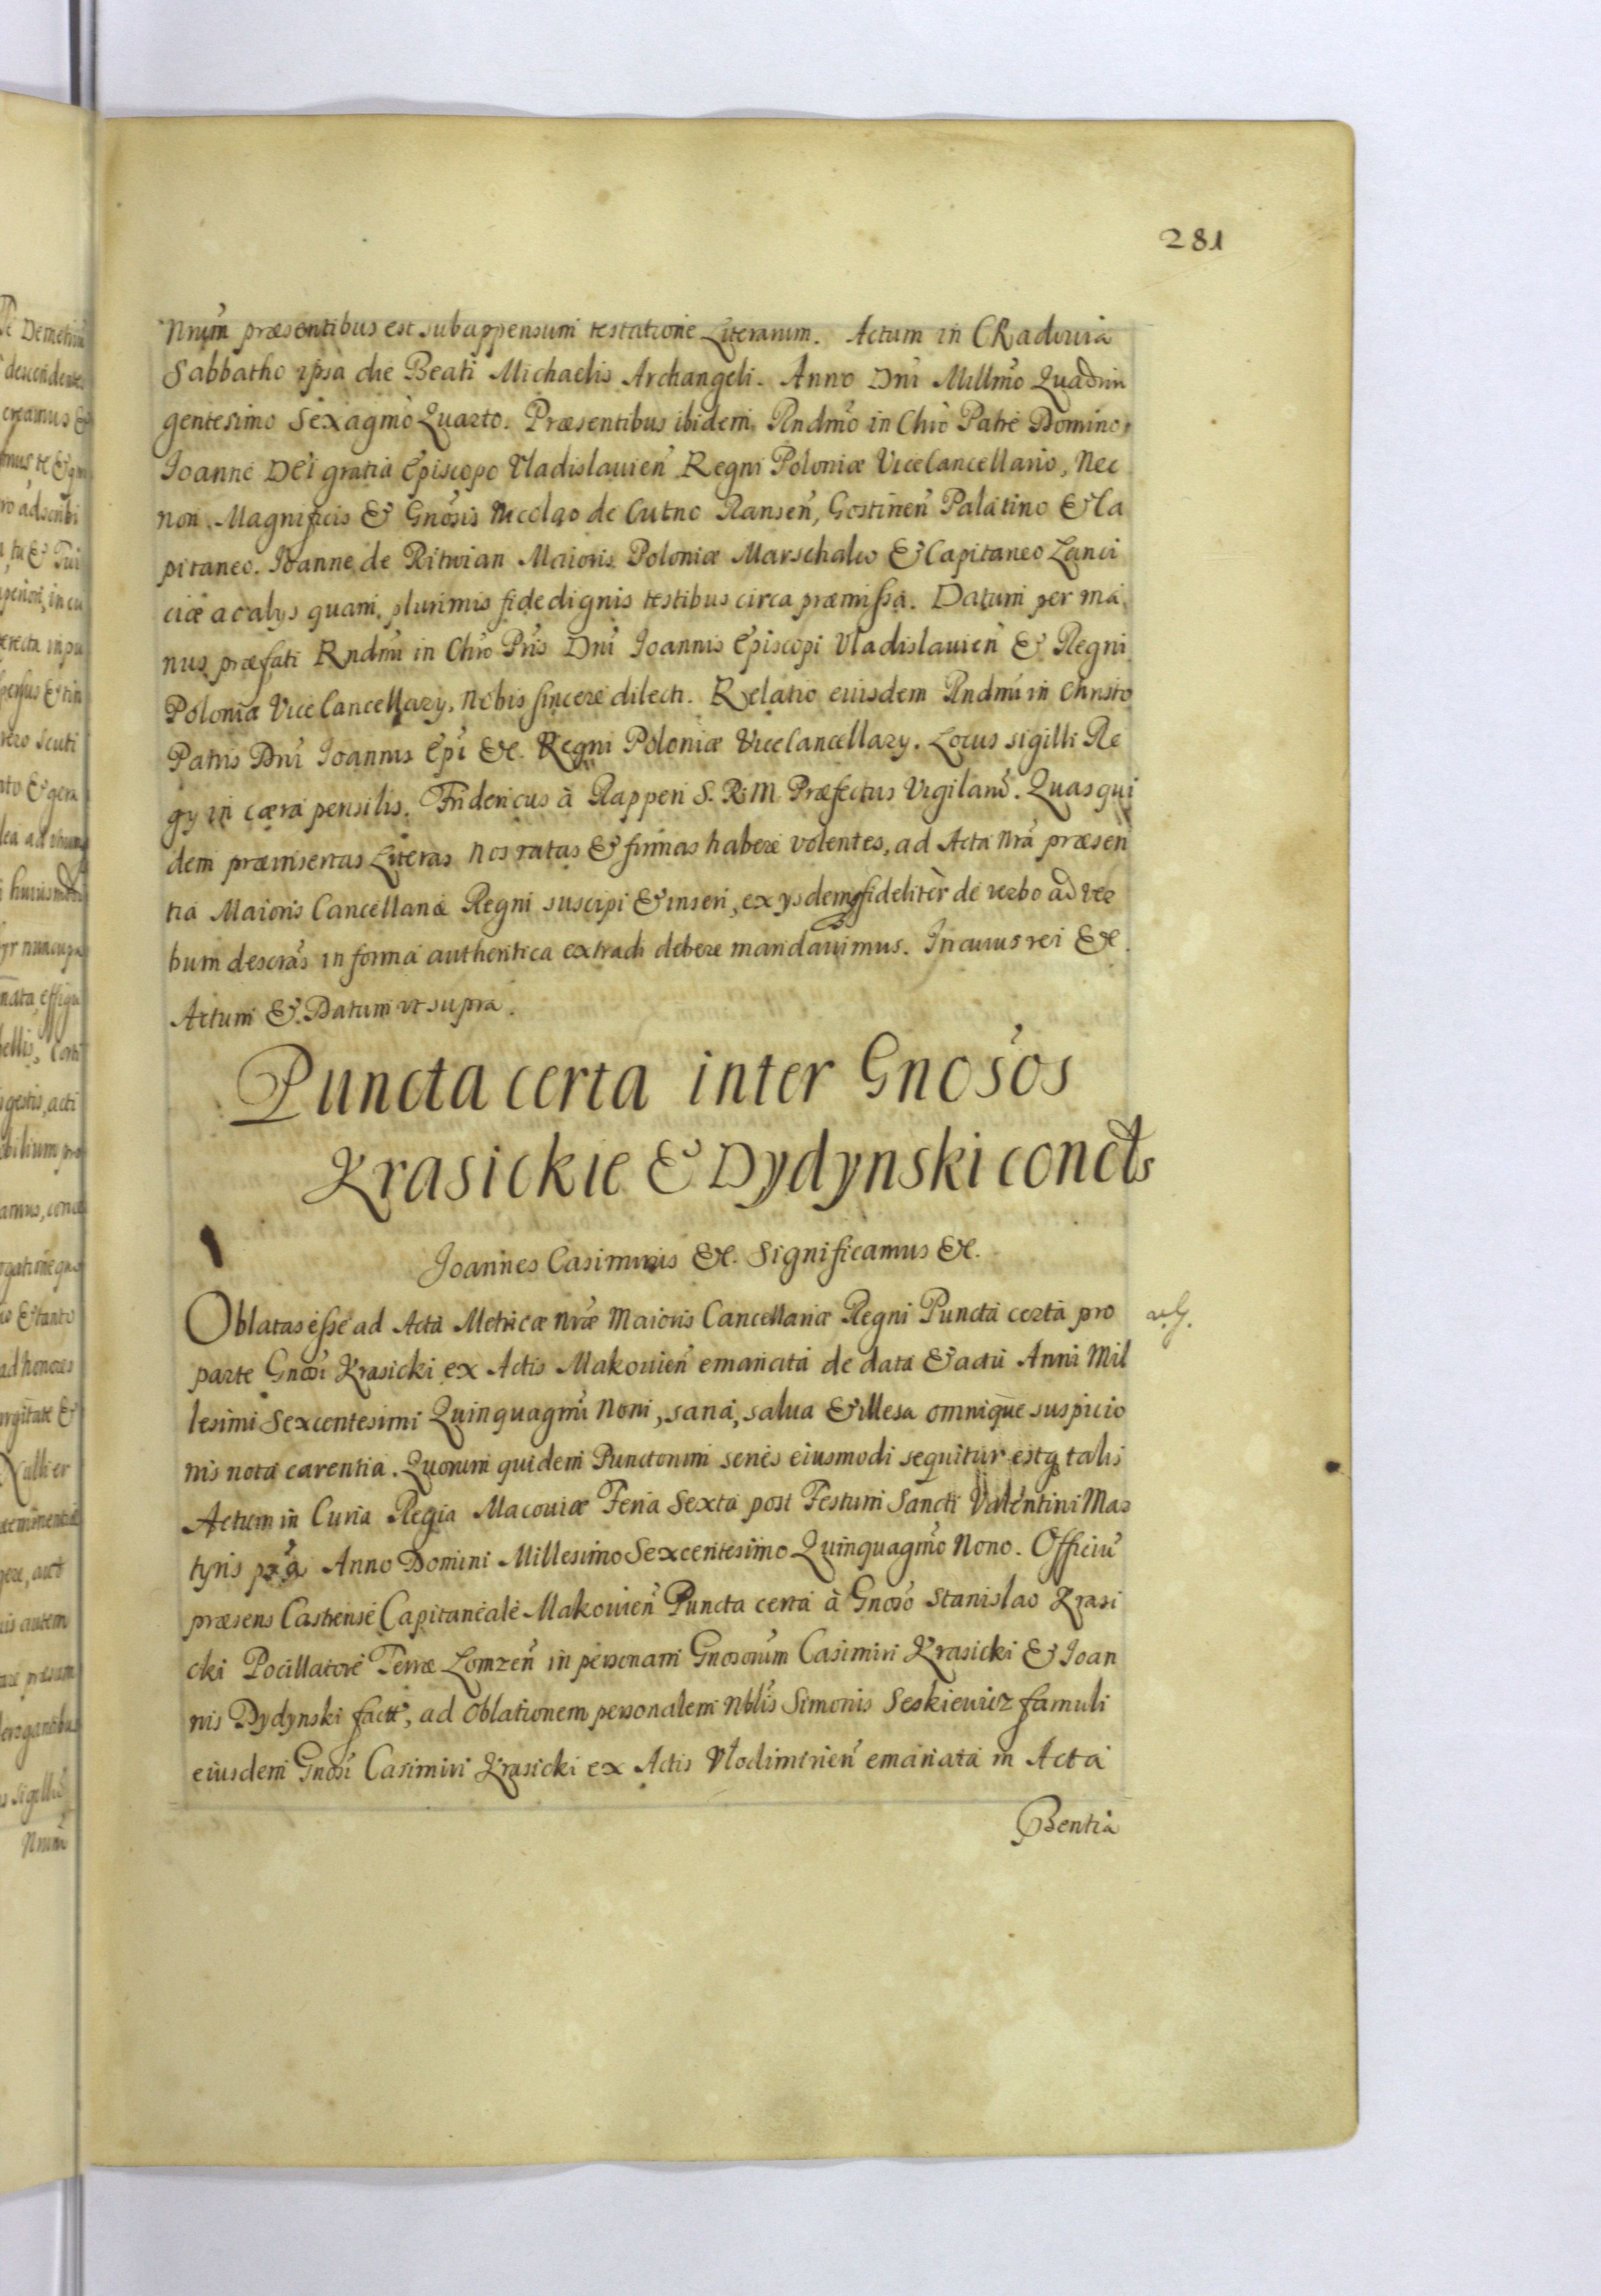 281
Nrum̃ præsentibus est subappensum testatione Literarum. Actum in CRadovia
Sabbatho ipsa die Beati Michaelis Archangeli. Anno Dñi Millmõ Quadrin
gentesimo Sexagmõ Quarto. Præsentibus ibidem Rndmõ in Chrõ Patre Domino,
Joanne Dei gratia Episcopo Vladislavieñ Regni Poloniæ Vicecancellario, Nec
non Magnificis & Gnõsis Nicolao de Cutno Ranseñ, Gostineñ Palatino & Ca
pitaneo. Joanne de Ritwian Maioris Poloniæ Marschalco & Capitaneo Lanci
ciæ ac alys quam plurimis fide dignis testibus circa præmissa. Datum per ma
nus præfati Rndmĩ in Chrõ Pris Dnĩ Joannis Episcopi Vladislavieñ & Regni
Poloniæ Vice Cancellary, Nobis sincere dilecti. Relatio eiusdem Rndmĩ in Christo
Patris Dnĩ Joannis Epĩ &c. Regni Poloniæ Vicecancellary. Locus sigilli Re
gy in cæra pensilis. Fridericus à Rappen S. R. M. Præfectus Vigilarũ. Quas qui
dem præinsertas Literas Nos ratas & firmas habere volentes, ad Acta nrã præsen
tia Maioris Cancellariæ Regni suscipi & inseri, ex ysdemq fideliter de verbo ad ver
bum descrãs in forma authentica extradi debere mandavimus. In cuius rei &c.
Actum & Datum ut supra.
Puncta certa inter Gnosõs
Krasickie & Dydynski conctts
Joannes Casimirus &c. Significamus &c.
Oblatas esse ad Acta Metricæ nræ Maioris Cancellariæ Regni Puncta certa pro
parte Gnosĩ Krasicki ex Actis Makovieñ emanata de data & actu Anni Mil
lesimi Sexcentesimi Quinquagmĩ Noni, sana, salva & illesa omnique suspicio
nis nota carentia. Quorum quidem Punctorum series eiusmodi sequitur estq talis
Actum in Curia Regia Macoviæ Feria Sexta post Festum Sancti Valentini Mar
tyris prã Anno Domini Millesimo Sexcentesimo Quinquagmõ Nono. Officiũ
præsens Castrense Capitaneale Makovieñ Puncta certa à Gnosõ Stanislao Krasi
cki Pocillatore Terræ Lomzeñ in personam Gnosorum̃ Casimiri Krasicki & Joan
nis Dydynski factt, ad Oblationem personalem Nblĩs Simonis Seskiewicz famuli
eiusdem Gnosĩ Casimiri Krasicki ex Actis Vlodimirieñ emanata in Acta